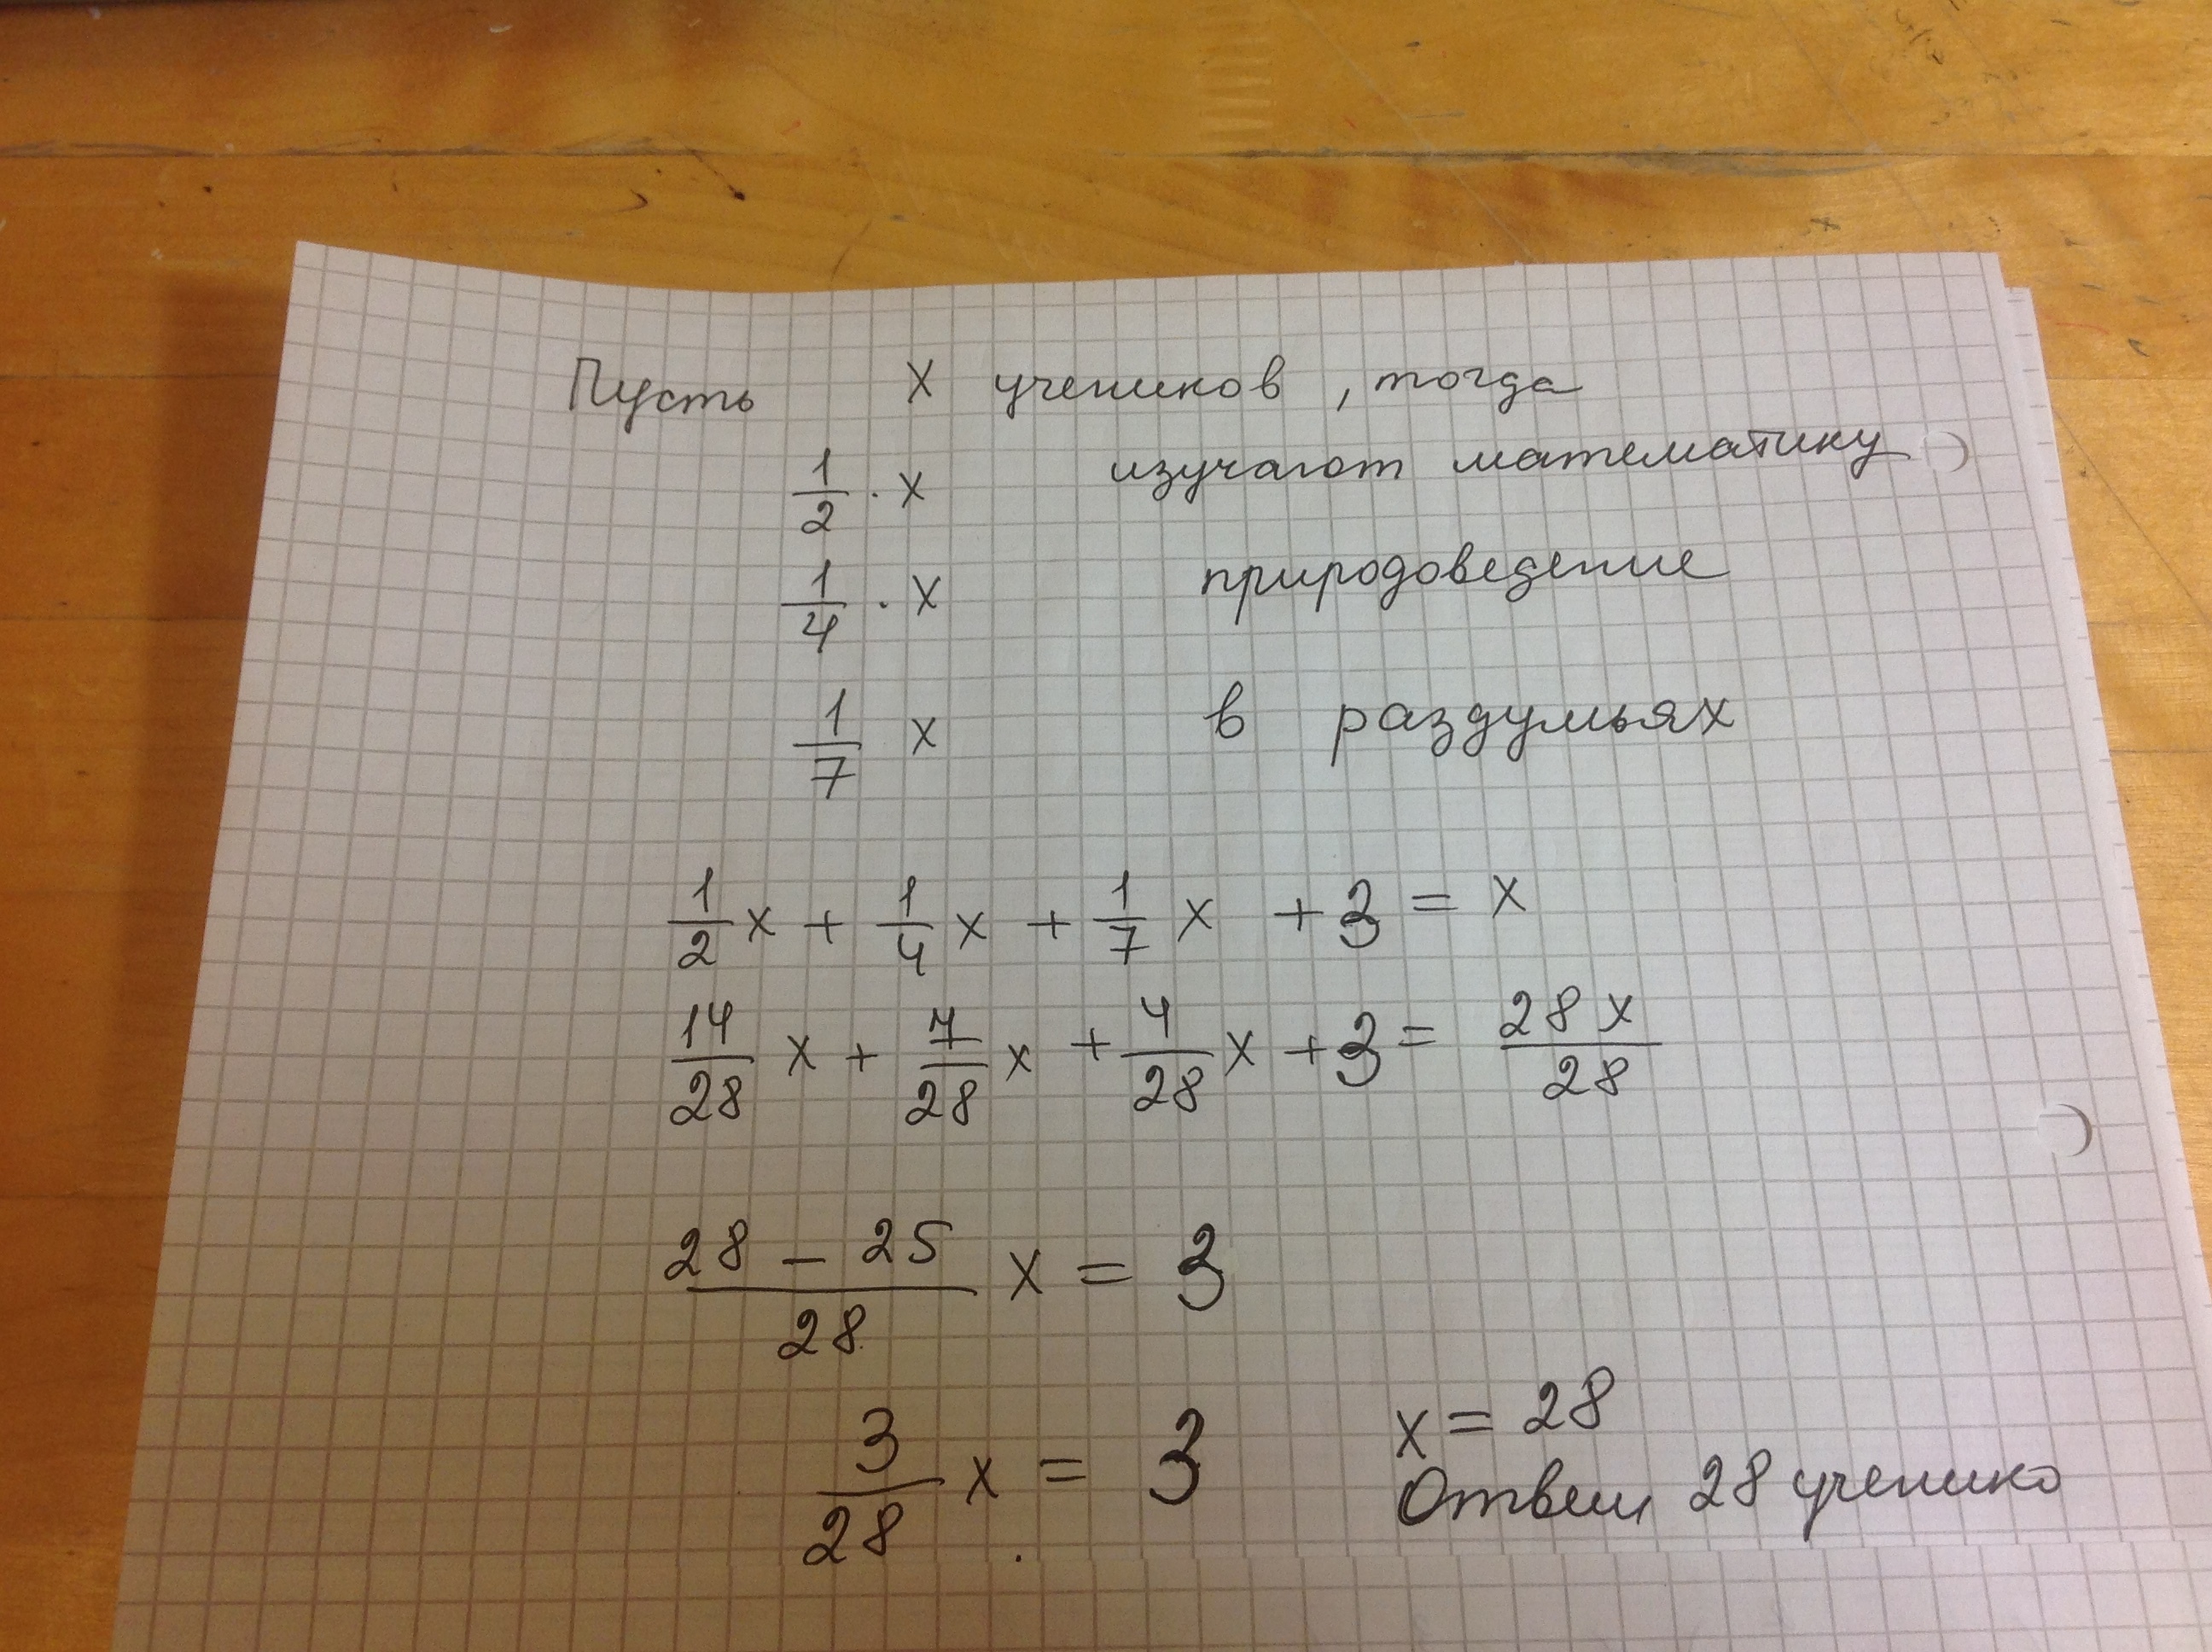 Пусть х учеников, тогда
1/2 · х изучают математику
1/4 · х природоведение
1/7 х в раздумьях
1/2 х + 1/4 х + 1/7 х + 3 = х
14/28 х + 7/28 х + 4/28 х + 3 = 28 х/28
(28 - 25)/28 х = 3
3/28 х = 3 х = 28
Ответ 28 ученико